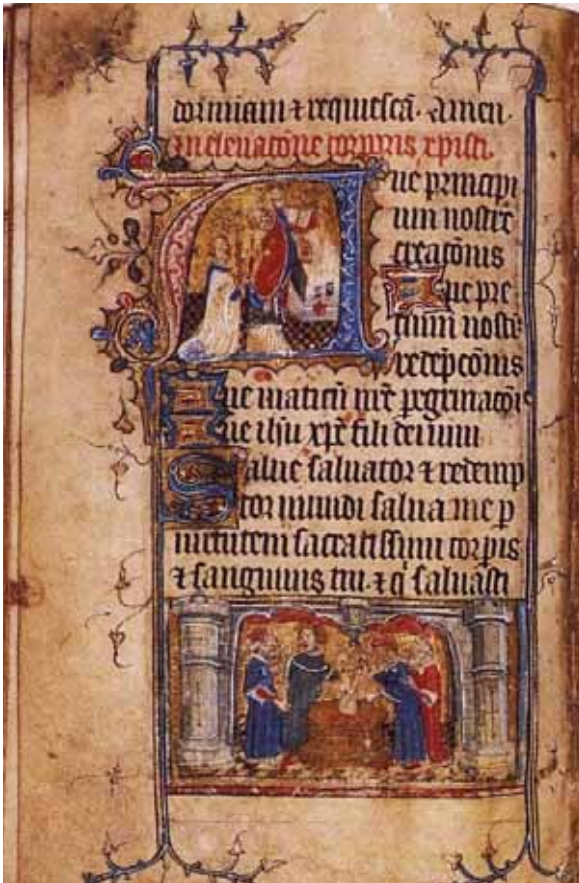 dormiam ⁊ requiescā. Amen.
In eleuacōne corporis xpisti.
Aue principi
um nostre
creacōnis
Aue pre
cium nostre
redēpcōnis
Aue uiaticū nrē peregrinacōis
Aue ihū xpē fili dei uiui
Salue saluator ⁊ redemp
tor mundi salua me p
uirtutem sacratissimi corpis
⁊ sanguinis tui. ⁊ q̄ saluasti